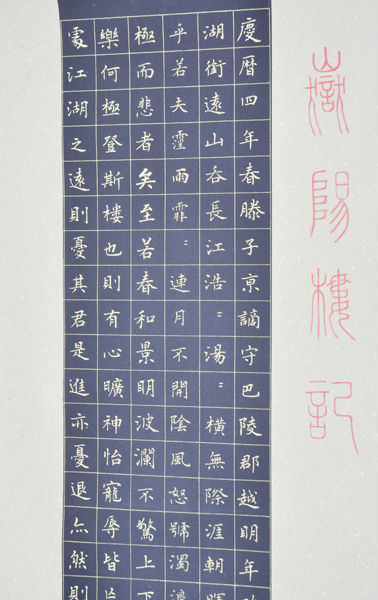 嶽陽樓記
慶曆四年春滕子京謫守巴陵郡越明年
湖銜遠山吞長江浩〻湯〻橫無際涯朝暉
乎若夫霪雨霏〻連月不開陰風怒號濁浪
極而悲者矣至若春和景明波瀾不驚上下
樂何極登斯樓也則有心曠神怡寵辱皆
處江湖之遠則憂其君是進亦憂退亦然則